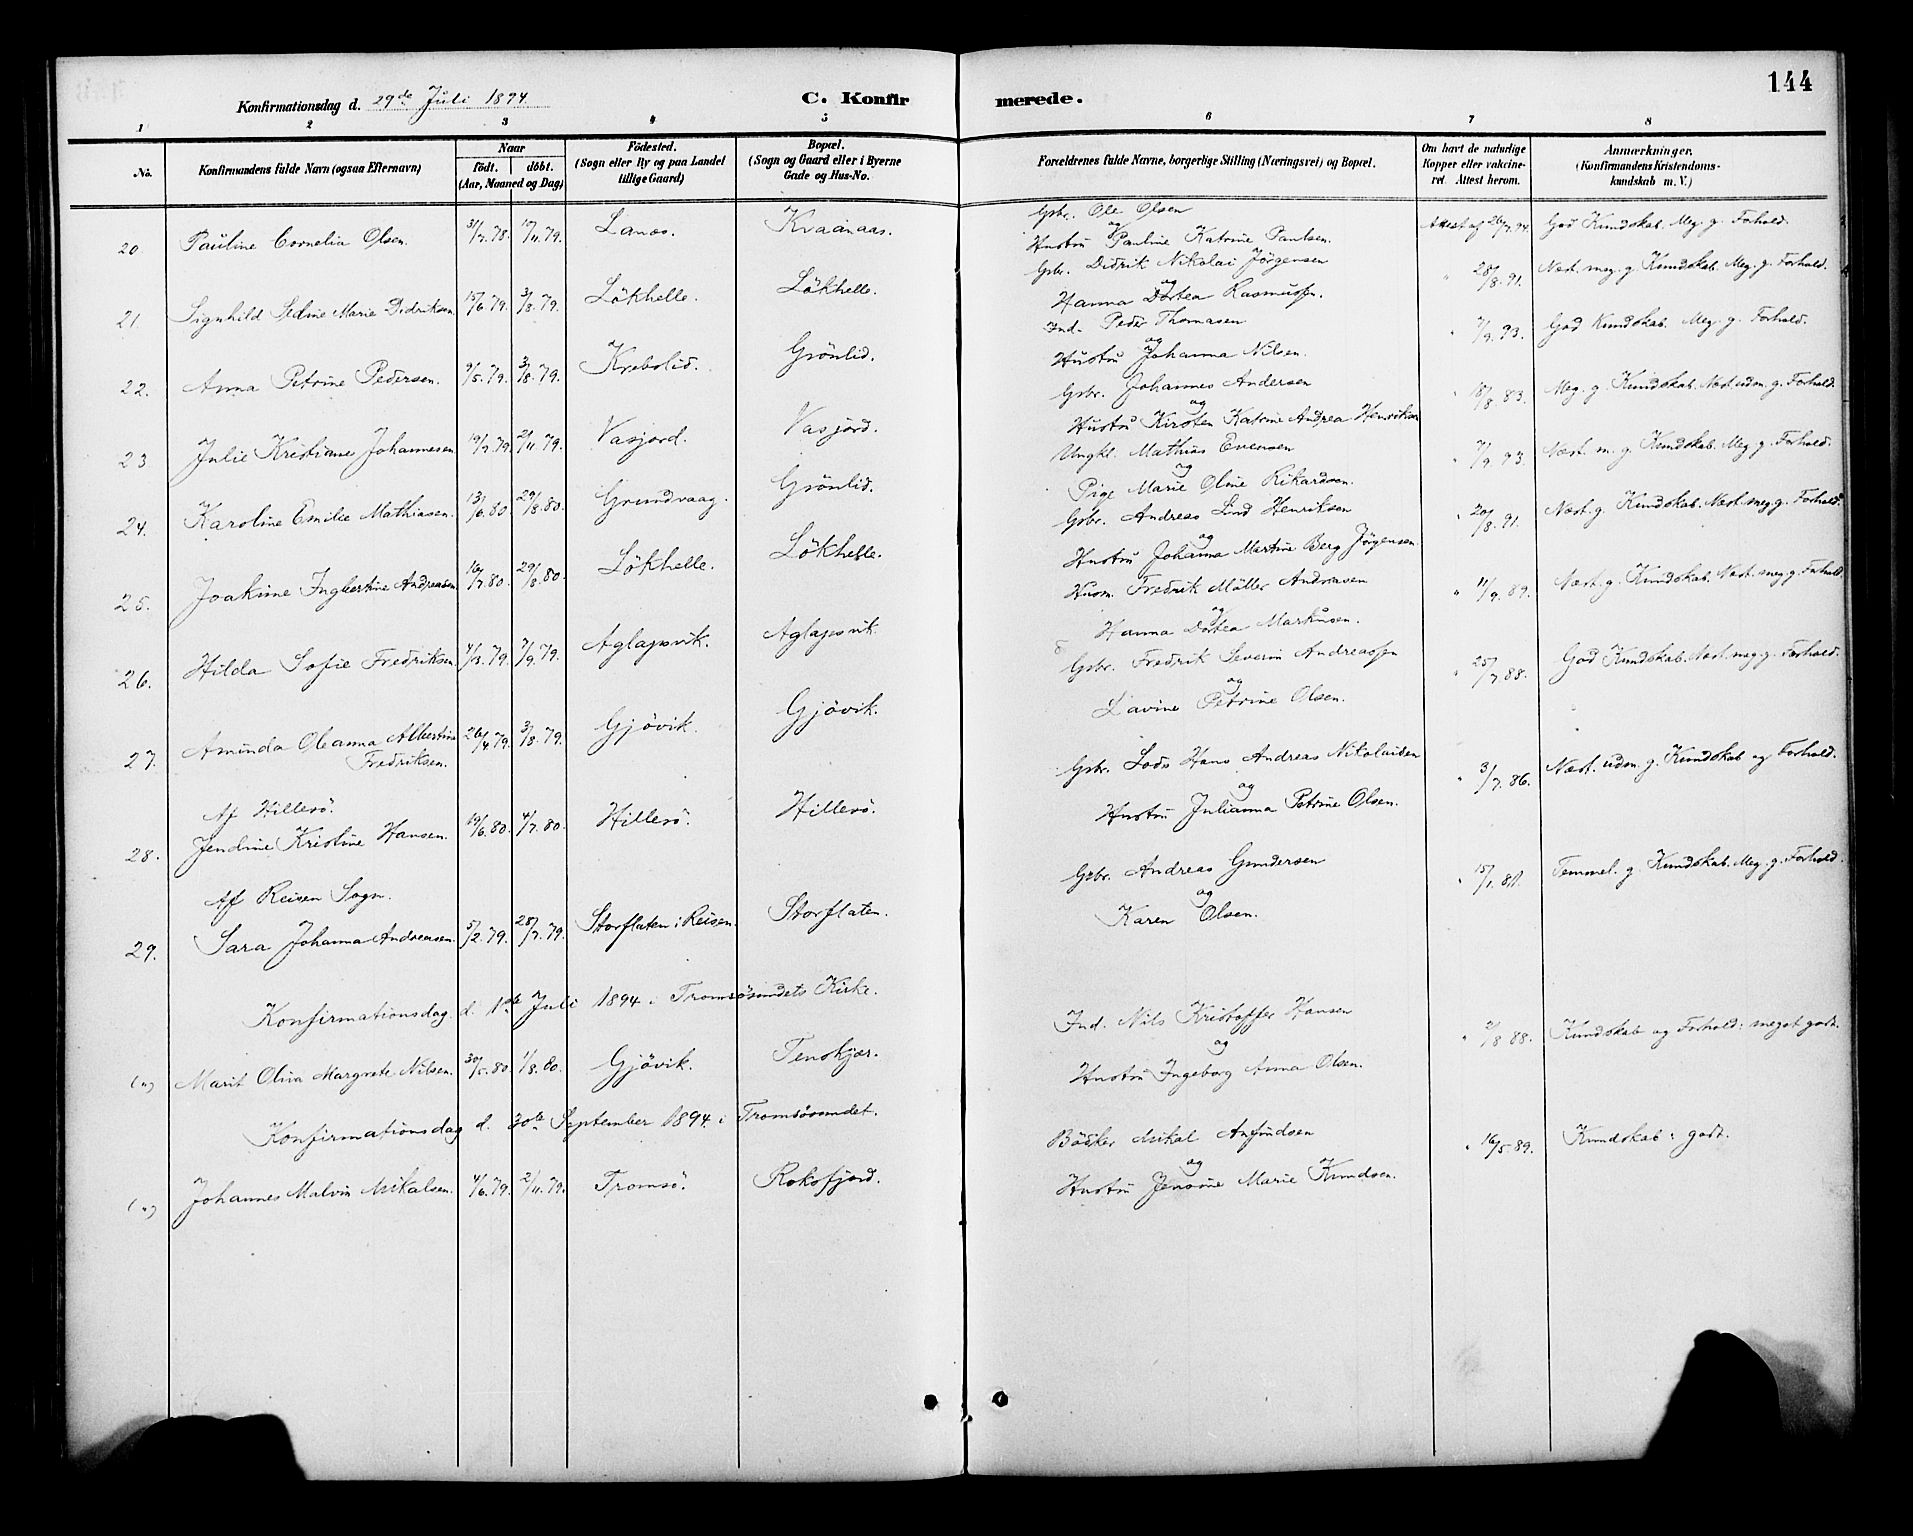 144
Konfirmationsdag d. 29de Juli 1894.
C. Konfirmerede.
1 2 3 4 5 6 7 8
No.
Konfirmandens fulde Navn (ogsaa Efternavn)
Naar
födt. döbt.
(Aar, Maaned og Dag)
Födested.
(Sogn eller By og paa Landet
tillige Gaard)
Bopæl.
(Sogn og Gaard eller i Byerne
Gade og Hus-No.
Forældrenes fulde Navne, borgerlige Stilling (Næringsvei) og Bopæl.
Om havt de naturlige
Kopper eller vakcine-
ret. Attest herom.
Anmærkninger,
(Konfirmandens Kristendoms-
kundskab m.V.)
20. Pauline Cornelia Olsen. 31/7.78. 17/11.79. Lanæs. Kvaanaas.
Gbr. Ole Olsen
og
Hustru Pauline Katrine Paulsen.
Attest af 26/7.94. God Kundskab. Meg. g. Forhold.
21. Signhild Sedine Marie Didriksen. 15/6.79. 3/8.79. Lökhelle. Lökhelle.
Gbr. Didrik Nikolai Jörgensen
og
Hanna Dortea Rasmussen.
" 28/8.91. Næst. meg. g. Kundskab. Meg. g. Forhold.
22. Anna Petrine Pedersen. 9/5.79. 3/8.79. Krebolid. Grönlid.
Ind. Peder Thomasen
og
Hustru Johanna Nilsen.
" 7/9.93. God Kundskab. Meg. g. Forhold.
23 Julie Kristiane Johannesen 19/7.79. 2/11.79. Vasjord. Vasjord.
Gbr. Johannes Andersen
og
Hustru Kirsten Katrine Andrea Henriksen
" 18/8.83. Meg. g. Kundskab. Næst. udm. g. Forhold.
24. Karoline Emilie Mathiasen. 13/6.80. 29/8.80. Grundvaag. Grönlid.
Ungkl. Mathias Evensen
og
Pige Marie Oline Rikardsen.
" 7/9.93. Næst. m. g. Kundskab. Meg. g. Forhold.
25. Joakime Ingbertine Andreasen 16/7.80. 29/8.80. Lökhelle. Lökhelle.
Gbr. Andreas Lind Henriksen
og
Hustru Johanna Martine Berg Jörgensen.
" 20/8.91. Næst. g. Kundskab. Næst. meg. g. Forhold.
26. Hilda Sofie Fredriksen. 4/3.79. 7/9.79. Aglapsvik. Aglapsvik
Husm. Fredrik Möller Andreasen
og
Hanna Dortea Markusen.
" 11/9.89. Næst. g. Kundskab. Næst. meg. g. Forhold.
27. Aminda Oleanna Albertine
Fredriksen. 26/4.79. 3/8.79. Gjövik. Gjövik.
Gbr. Fredrik Severin Andreassen
og
Lavine Petrine Olsen.
" 25/7.88. God Kundskab. Næst. meg. g. Forhold.
Af Hillesö.
28. Jendine Kristine Hansen. 19/6.80. 4/7.80. Hillesö. Hillesö.
Gbr. Lods Hans Andreas Nikolaisen
og
Hustru Julianna Petrine Olsen.
" 3/7.86. Næst. udm. g. Kundskab og Forhold.
Af Reisen Sogn.
29. Sara Johanna Andreasen. 5/2.79. 28/7.79. Storflaten i Reisen. Storflaten.
Gbr. Andreas Gundersen
og
Karen Olsen.
Temmel. g. Kundskab. Meg. g. Forhold.
Konfirmationsdag d. 1ste Juli 1894 i Tromsösundets Kirke.
(") Marit Oliva Margrete Nilsen. 30/5.80. 1/8.80. Gjövik. Tenskjær.
Ind. Nils Kristoffer Hansen
og
Hustru Ingeborg Anna Olsen.
" 2/8 88. Kundskab og Forhold: meget godt.
Konfirmationsdag d. 30te September 1894 i Tromsösundet.
(") Johannes Malvin Mikalsen. 4/6.79. 2/11.79. Tromsö. Roksfjord.
Bödker Mikal Amundsen
og
Hustru Jensine Marie Knudsen.
" 16/5.89. Kundskab: godt.